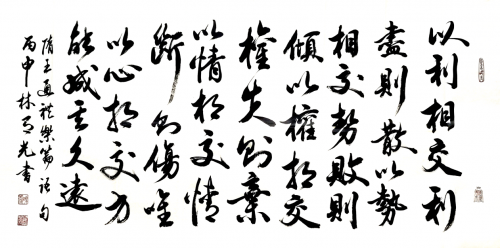 以利相交利
盡則散以勢
相交勢敗則
傾以權相交
權失則棄
以情相交情
斷則傷唯
以心相交方
能成其久遠
隋王通禮樂篇語句
丙申林光書